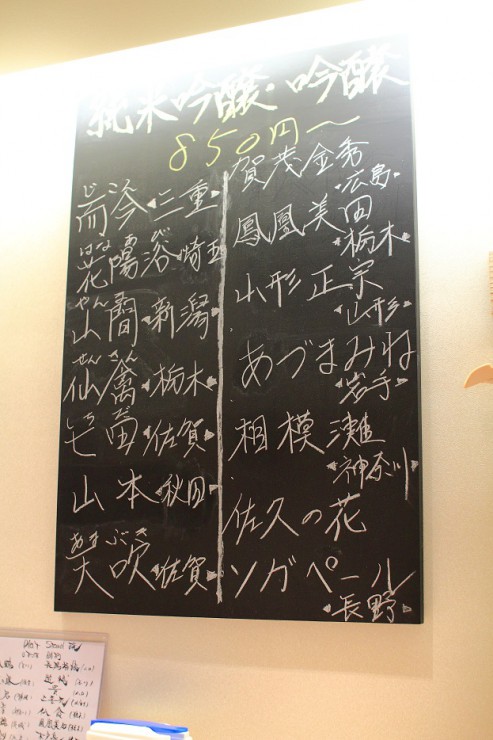 純米吟醸・吟醸
850円〜
じこん
而今 三重
はなあび
花陽浴 埼玉
やん
山間 新潟
せんきん
仙禽 栃木
しちだ
七田 佐賀
山本 秋田
あまぶき
天吹 佐賀
賀茂金秀
広島
鳳凰美田
栃木
山形正宗
山形
あづまみね
岩手
相模灘
神奈川
佐久の花
ソガペール
長野